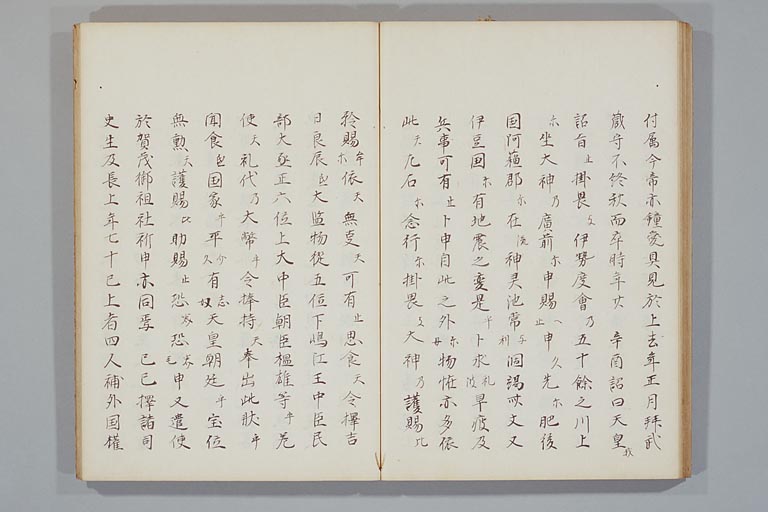 付属今帝亦鍾愛具見於上去年正月拜武
蔵守不終秋而卒時年廿 辛酉詔曰天皇我
詔旨止掛畏支伊勢度會乃五十鈴之川上
尓坐大神乃廣前尓申賜止申久先尓肥後
国阿蘇郡尓在流神灵池常与利涸渇世又
伊豆国尓有地震之変是乎卜求礼波旱疫及
兵事可有止卜申自此之外尓物恠亦多依
此天尓念行尓掛畏支大神乃護賜比
矜賜牟尓依天無変天可有止思食天令擇吉
日良辰弖大監物従五位下嶋江王中臣民
部大丞正六位上大中臣朝臣楹雄等乎差
使天礼代乃大幣乎令捧持天奉出此状乎
聞食弖国家乎平久有志天皇朝廷乎宝位
無動天護賜比助賜止恐美恐美毛申又遣使
於賀茂御祖社祈申亦同焉 己巳擇諸司
史生及長上年七十已上者四人補外国権